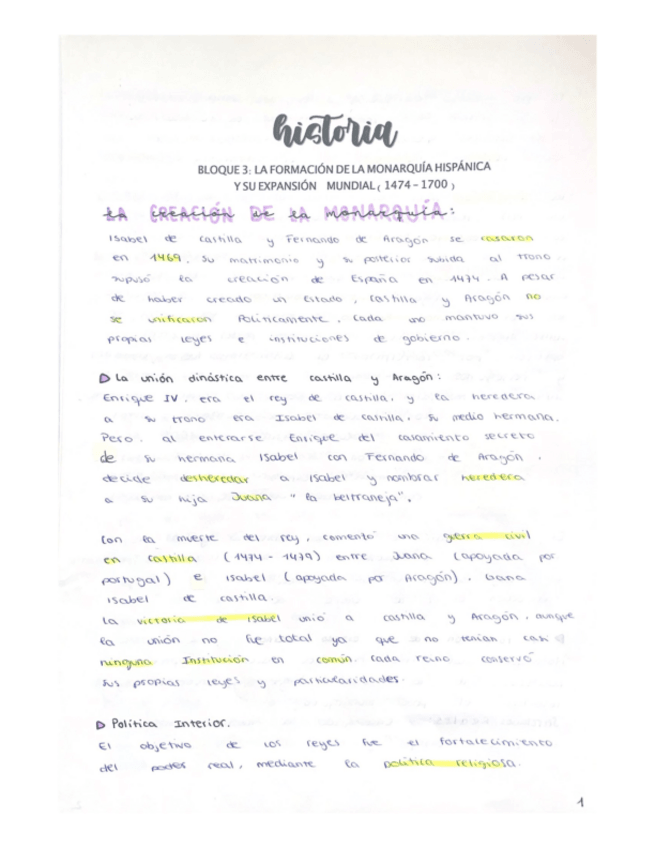 historia
BLOQUE 3: LA FORMACIÓN DE LA MONARQUÍA HISPÁNICA
Y SU EXPANSIÓN MUNDIAL ( 1474 - 1700 )
LA CREACIÓN DE LA MONARQUÍA:
Isabel de Castilla y Fernando de Aragón se casaron
en 1469. Su matrimonio y su posterior subida al trono
supusó la creación de España en 1474. A pesar
de haber creado un Estado, Castilla y Aragón no
se unificaron Políticamente, cada uno mantuvo sus
propias leyes e instituciones de gobierno.
La unión dinástica entre castilla y Aragón:
Enrique IV, era el rey de castilla, y la heredera
a su trono era Isabel de castilla, su medio hermana.
Pero, al enterarse Enrique del casamiento secreto
de su hermana Isabel con Fernando de Aragón,
decide desheredar a Isabel y nombrar heredera
a su hija Juana "la beltraneja".
Con la muerte del rey, comentó una guerra civil
en Castilla (1474 - 1479) entre Juana (apoyada por
portugal) e Isabel (apoyada por Aragón). Gana
Isabel de castilla.
La victoria de Isabel unió a castilla y Aragón, aunque
la unión no fue total ya que no tenían casi
ninguna Institución en común. Cada reino conservó
sus propias leyes y particularidades.
Política Interior.
El objetivo de los reyes fue el fortalecimiento
del poder real, mediante la política religiosa.
1